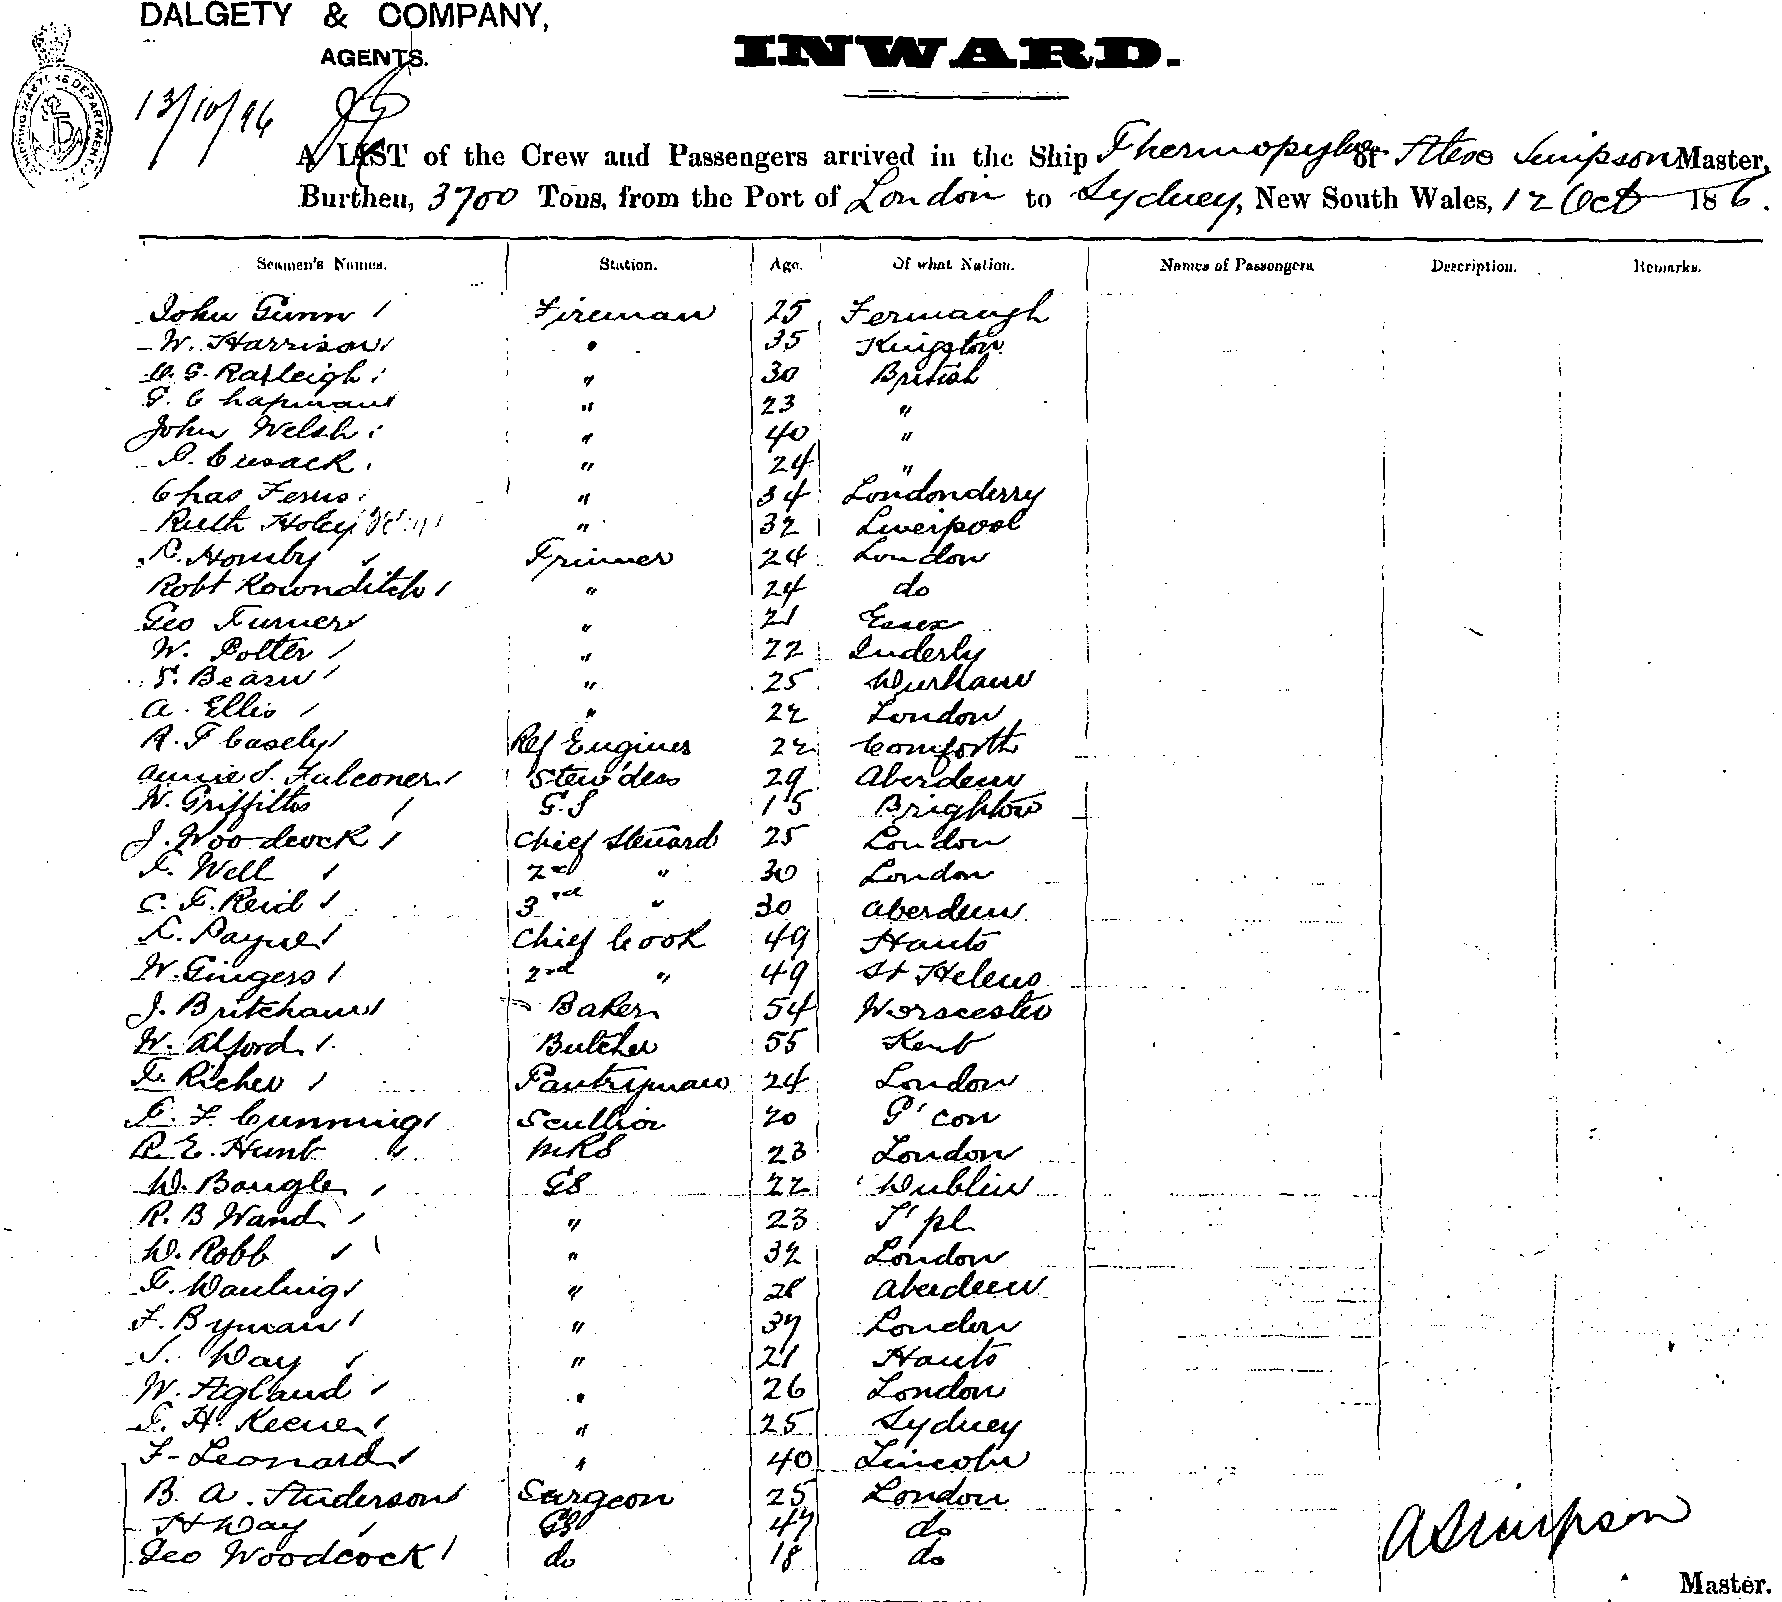 DALGETY & COMPANY,
AGENTS.
INWARD.
SHIPPING MASTERS DEPARTMENT
13/10/96
A LIST of the Crew and Passengers arrived in the Ship Thermopylae of Simpson Master,
Burthen, 3700 Tons, from the Port of London to Sydney, New South Wales, 12 Oct 1896.
Seamen's Names. Station. Age. Of what Nation. Names of Passengers Description. Remarks.
John Gunn Fireman 25 Fermaugh
W. Harrison " 35 Kingston
G. Rayleigh " 30 British
G. Chapman " 23 "
John Welsh " 40 "
Cusack " 24 "
Chas Ferris " 34 Londonderry
Ruth Holey " 32 Liverpool
Hornby Trimmer 24 London
Robt Rownditch " 24 do
Geo Turner " 21 Essex
W. Potter " 22
Bearn " 25 Durham
A. Ellis " 22 London
R. T Casely Ref Engineer 22
Annie S. Falconer Stew'dess 29 Aberdeen
W. Griffiths G.S 15 Brighton
J. Woodcock Chief Steward 25 London
Well 2nd " 30 London
Reid 3rd " 30 Aberdeen
Payne Chief Cook 49 Hants
W. Gingers 2nd " 49 St Helens
J. Britcham Baker 54 Worcester
W. Alford Butcher 55 Kent
Richer Pantryman 24 London
F Cumming Scullion 20 G'con
R. E. Hunt MRS 23 London
W. Bangle GS 22 Dublin
R. B Wand " 23 L'pl
W. Robb " 32 London
" 28 Aberdeen
F. Byman " 37 London
Day " 21 Hants
W. Agland " 26 London
H. Keene " 25 Sydney
F. Leonard " 40 Lincoln
B. A. Anderson Surgeon 25 London
H Day GS 47 do
Geo Woodcock do 18 do
A Simpson
Master.